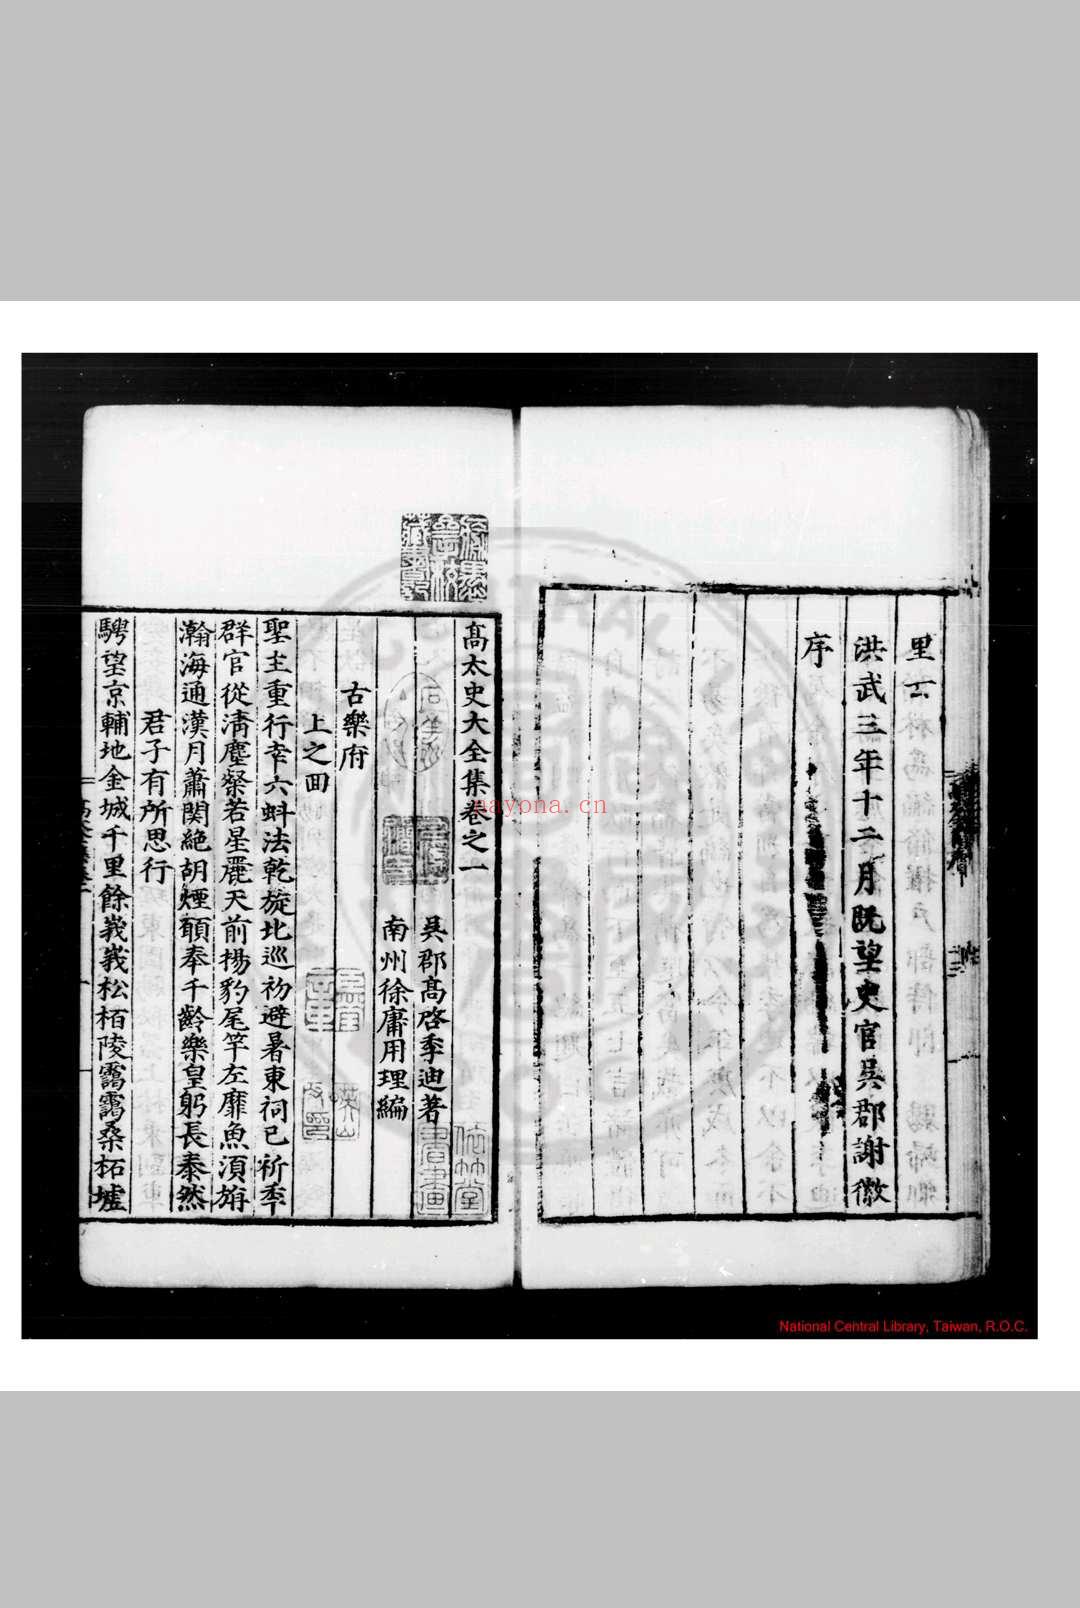 里云
洪武三年十二月既望史官吳郡謝徽
序
髙太史大全集卷之一
吳郡髙啓季迪著
南州徐庸用理編
古樂府
上之回
聖主重行幸六蚪法乾旋北巡初避暑東祠已祈秊
群官從清塵粲若星麗天前揚豹尾竿左靡魚湏旃
瀚海通漢月蕭関絶胡煙願奉千齡樂皇躬長泰然
君子有所思行
騁望京輔地金城千里餘峩峩松栢陵靄靄桑柘墟
倚竹堂
書畫
nayona.cn
National Central Library, Taiwan, R.O.C.